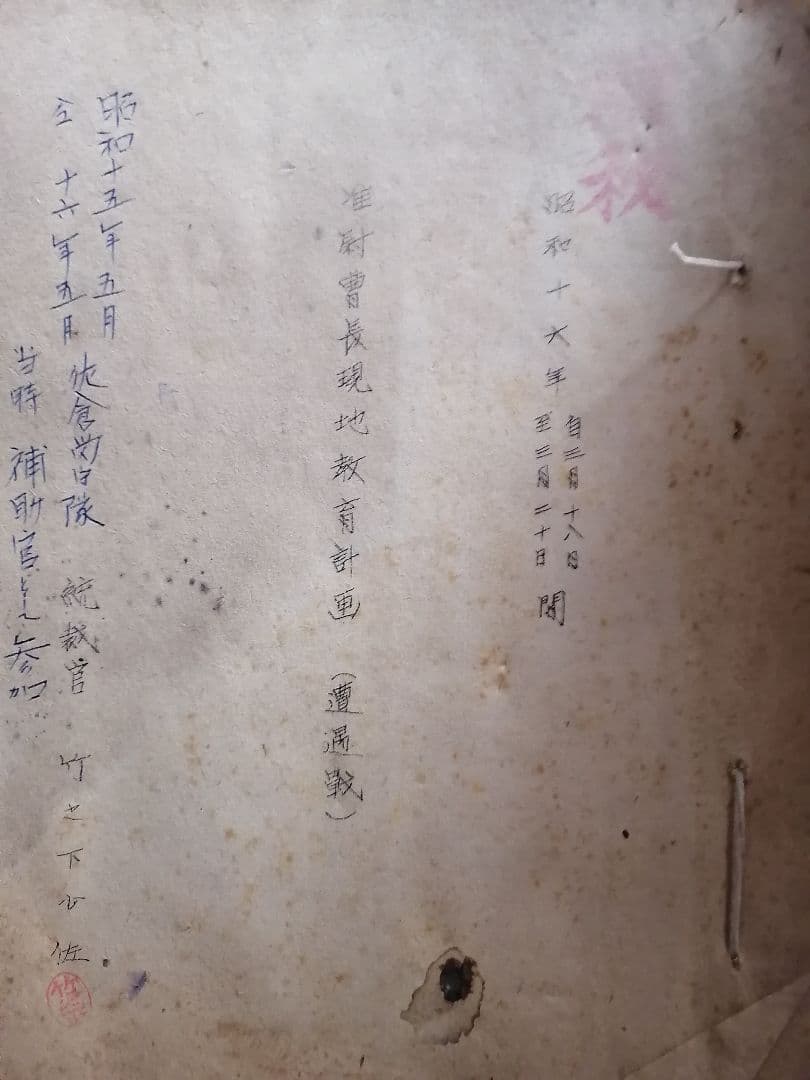 秘
昭和十六年 自三月十八日
至三月二十日 間
准尉曹長現地教育計画（遭遇戦）
統裁官 竹之下少佐
昭和十五年五月
仝 十六年五月 佐倉営内隊
当時 補助官として参加